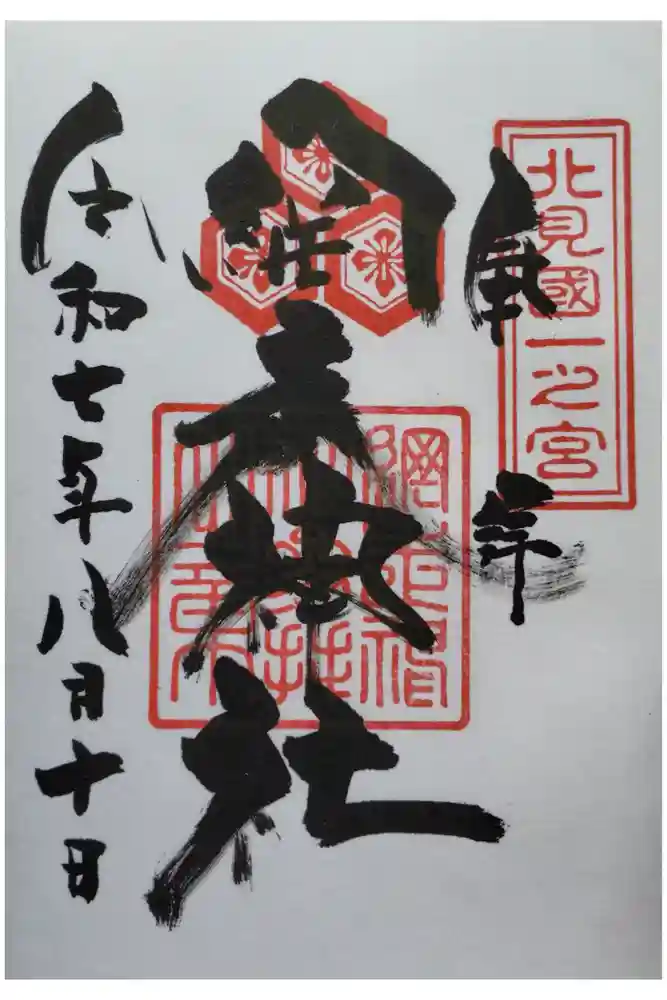 奉拝
北見國一之宮
網走神社
令和七年八月十日